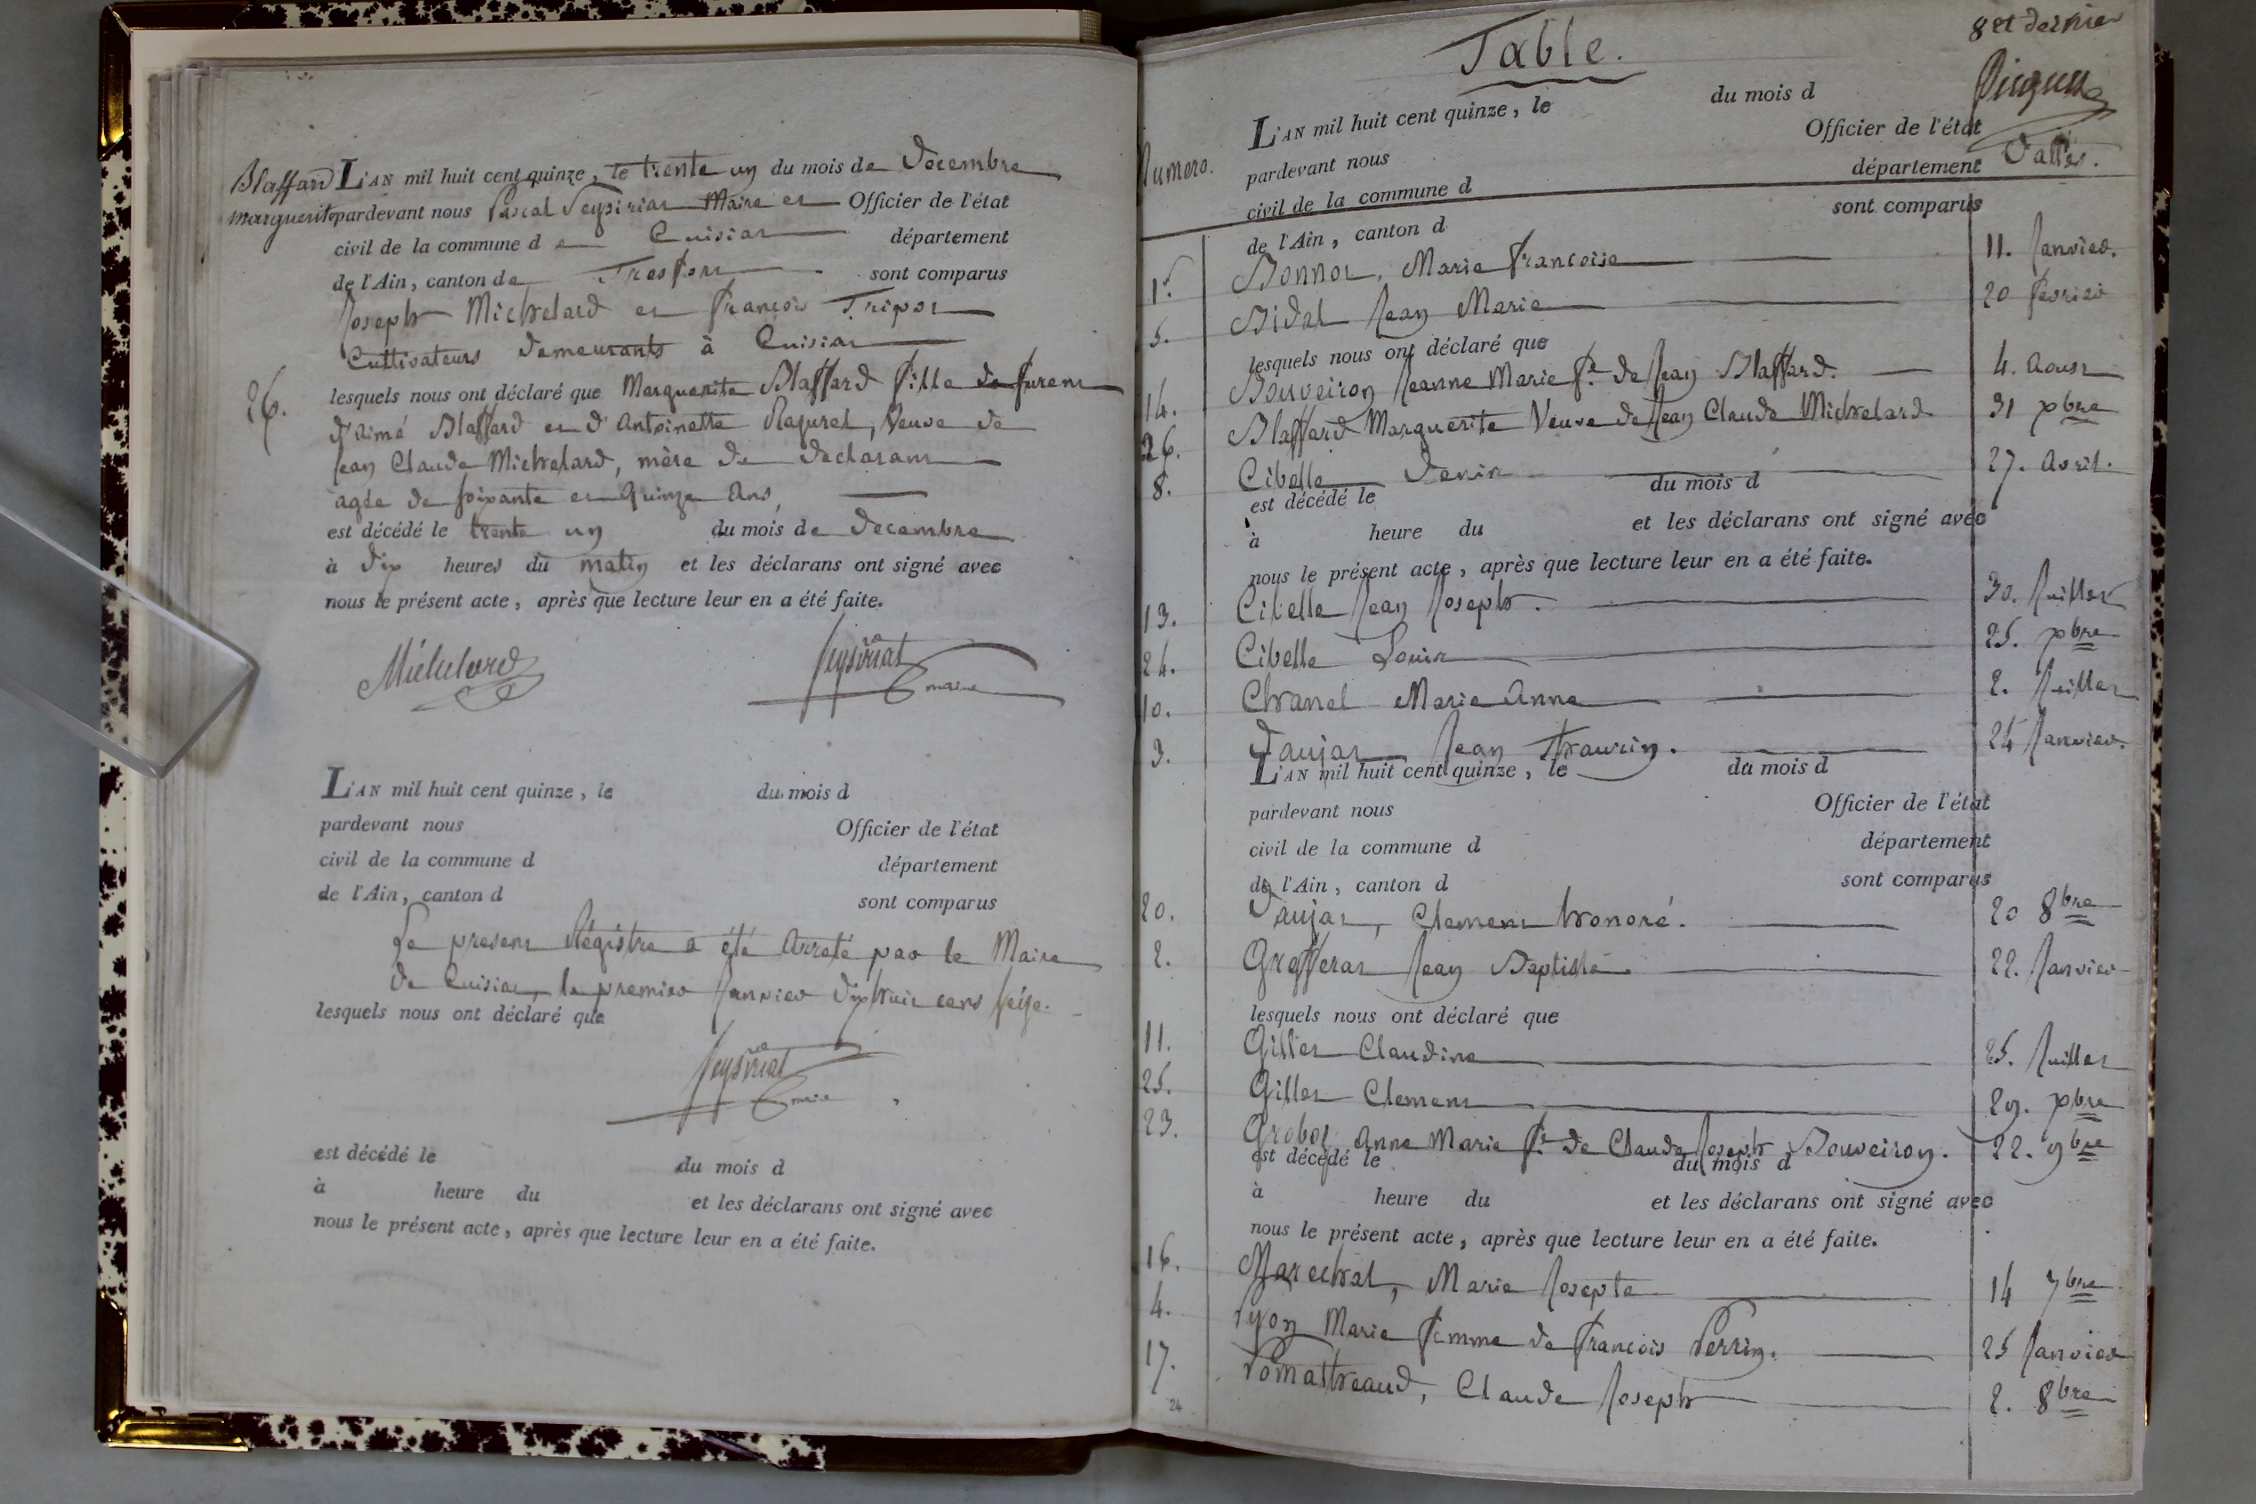 Blaffard
marguerite
26.
L'AN mil huit cent quinze, le trente un du mois de Decembre
pardevant nous Pascal Peysiriat Maire et Officier de l'état
civil de la commune de Cuisiat département
de l'Ain, canton de Trefort sont comparus
Joseph Michelard et francois Tripot
Cultivateurs demeurants à Cuisiat
lesquels nous ont déclaré que Marguerite Blaffard fille de furent
d'aimé Blaffard et d'Antoinette Raquret, Veuve de
Jean Claude Michelard, mère du declarant
agée de soixante et quinze ans,
est décédé le trente un du mois de decembre
à dix heures du matin et les déclarans ont signé avec
nous le présent acte, après que lecture leur en a été faite.
Michelard Peysiriat
maire
L'AN mil huit cent quinze, le du mois d
pardevant nous Officier de l'état
civil de la commune d département
de l'Ain, canton d sont comparus
Le present Régistre a été arreté par le Maire
de Cuisiat, le premier Janvier dixhuit cent seize.
lesquels nous ont déclaré que
Peysiriat
maire
est décédé le du mois d
à heure du et les déclarans ont signé avec
nous le présent acte, après que lecture leur en a été faite.
8 et dernier
Table.
L'AN mil huit cent quinze, le du mois d
pardevant nous Officier de l'état
Numero. civil de la commune d département Dattes.
de l'Ain, canton d sont comparus
1er Bonnot, Marie francoise 11. Janvier.
5. Bidal Jean Marie 20 fevrier
lesquels nous ont déclaré que
14. Bouveiron Jeanne Marie fe. de Jean Blaffard. 4. Aoust
26. Blaffard Marguerite Veuve de Jean Claude Michelard 31 xbre
8. Cibelle Denis 27. Avril.
est décédé le du mois d
à heure du et les déclarans ont signé avec
nous le présent acte, après que lecture leur en a été faite.
13. Cibelle Jean Joseph. 30. Juillet
24. Cibelle Louis 25. xbre
10. Chanel Marie Anne 2. Juillet
3. Daujat Jean 24 Janvier.
L'AN mil huit cent quinze, le du mois d
pardevant nous Officier de l'état
civil de la commune d département
de l'Ain, canton d sont comparus
20. Daujat, Clement honoré. 20 8bre
2. Grefferat Jean Baptiste 22. Janvier
lesquels nous ont déclaré que
11. Gillet Claudine 25. Juillet
25. Gillet Clement 29. xbre
23. Groboz Anne Marie fe. de Claude Joseph Bouveiron. 22. 9bre
est décédé le du mois d
à heure du et les déclarans ont signé avec
nous le présent acte, après que lecture leur en a été faite.
16. Marechal, Marie Josepte 14 7bre
4. Pyon Marie femme de francois Perrin. 25 Janvier
17. Pomathreaud, Claude Joseph 2. 8bre
24